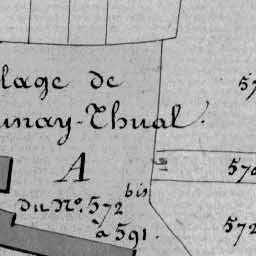 lage de
unay-Thual.
A
du N°. 572 bis
à 591.
572